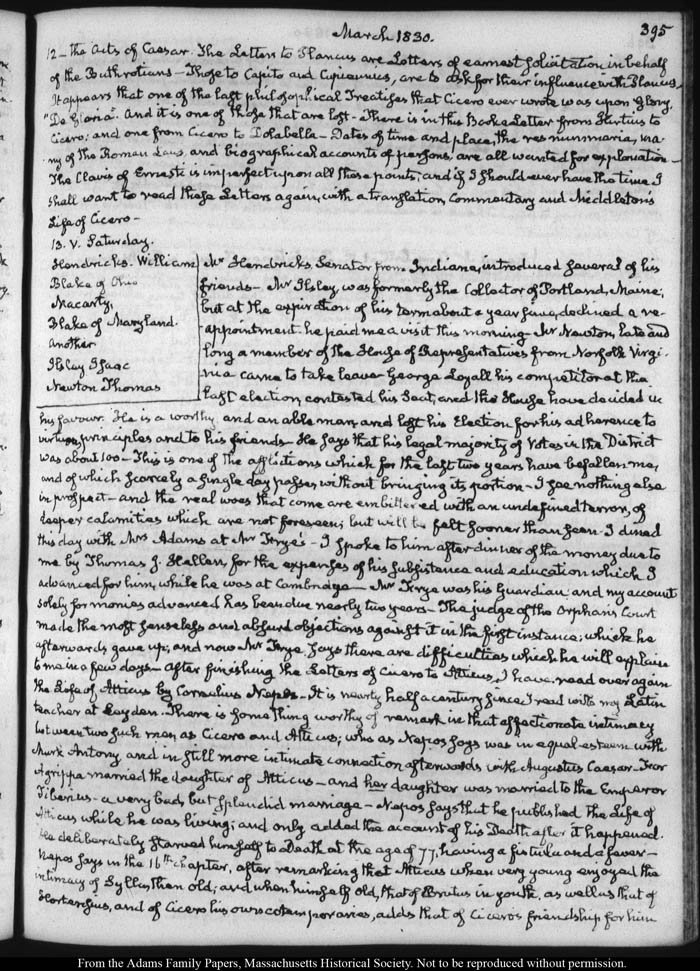 March 1830.
395
12 - the acts of Caesar. The Letters to Plancus are Letters of earnest solicitation in behalf
of the Buthrotians - Those to Capito and Cupiennius, are to ask for their influence with Plancus.
It appears that one of the last philosophical Treatises that Cicero ever wrote was upon Glory,
"De Gloria." and it is one of those that are lost - There is in this Book a Letter from Hirtius to
Cicero; and one from Cicero to Dolabella - Dates of time and place, the res nummaria, ma-
ny of the Roman Laws, and biographical accounts of persons, are all wanted for explanation -
The Clavis of Ernesti is imperfect upon all these points; and if I should ever have the time I
shall want to read these Letters again, with a translation, Commentary and Middleton's
Life of Cicero -
13. V. Saturday.
Hendricks. William
Blake of Ohio
Macarty,
Blake of Maryland.
another
Ilsley Isaac
Newton Thomas
Mr Hendricks, Senator from Indiana, introduced several of his
friends - Mr Ilsley, was formerly the Collector of Portland, Maine;
but at the expiration of his term about a year since, declined a re-
-appointment. he paid me a visit this morning. Mr Newton, late and
long a member of the House of Representatives from Norfolk Virgi-
nia came to take leave. George Loyall his competitor at the
last election, contested his Seat, and the House have decided in
his favour. He is a worthy and an able man, and lost his Election for his adherence to
virtuous principles and to his friends - He says that his legal majority of Votes in the District
was about 100 - This is one of the afflictions which for the last two years have befallen me,
and of which scarcely a single day passes, without bringing its portion - I see nothing else
in prospect - and the real woes that come are embittered with an undefined terror, of
deeper calamities which are not foreseen; but will be felt sooner than seen. I dined
this day with Mrs Adams at Mr Frye's - I spoke to him after dinner of the money due to
me by Thomas J. Hellen, for the expenses of his subsistence and education which I
advanced for him, while he was at Cambridge - Mr Frye was his Guardian and my account
solely for monies advanced has been due nearly two years - The judge of the Orphan's Court
made the most senseless and absurd objections against it in the first instance; which he
afterwards gave up; and now Mr Frye says there are difficulties which he will explain
to me in a few days - After finishing the Letters of Cicero to Atticus, I have read over again
the Life of Atticus by Cornelius Nepos - It is nearly half a century since I read with my Latin
teacher at Leyden. There is something worthy of remark in that affectionate intimacy
between two such men as Cicero and Atticus; who as Nepos says was in equal esteem with
Mark Antony, and in still more intimate connection afterwards with Augustus Caesar. For
Agrippa married the daughter of Atticus - and her daughter was married to the Emperor
Tiberius - a very bad, but splendid marriage - Nepos says that he published the Life of
Atticus while he was living; and only added the account of his Death after it happened.
He deliberately starved himself to Death at the age of 77, having a fistula and a fever -
Nepos says in the 16th chapter, after remarking that Atticus when very young enjoyed the
intimacy of Sylla, then old; and when himself old, that of Brutus in youth, as well as that of
Hortensius, and of Cicero his own cotemporaries, adds that of Cicero's friendship for him
From the Adams Family Papers, Massachusetts Historical Society. Not to be reproduced without permission.